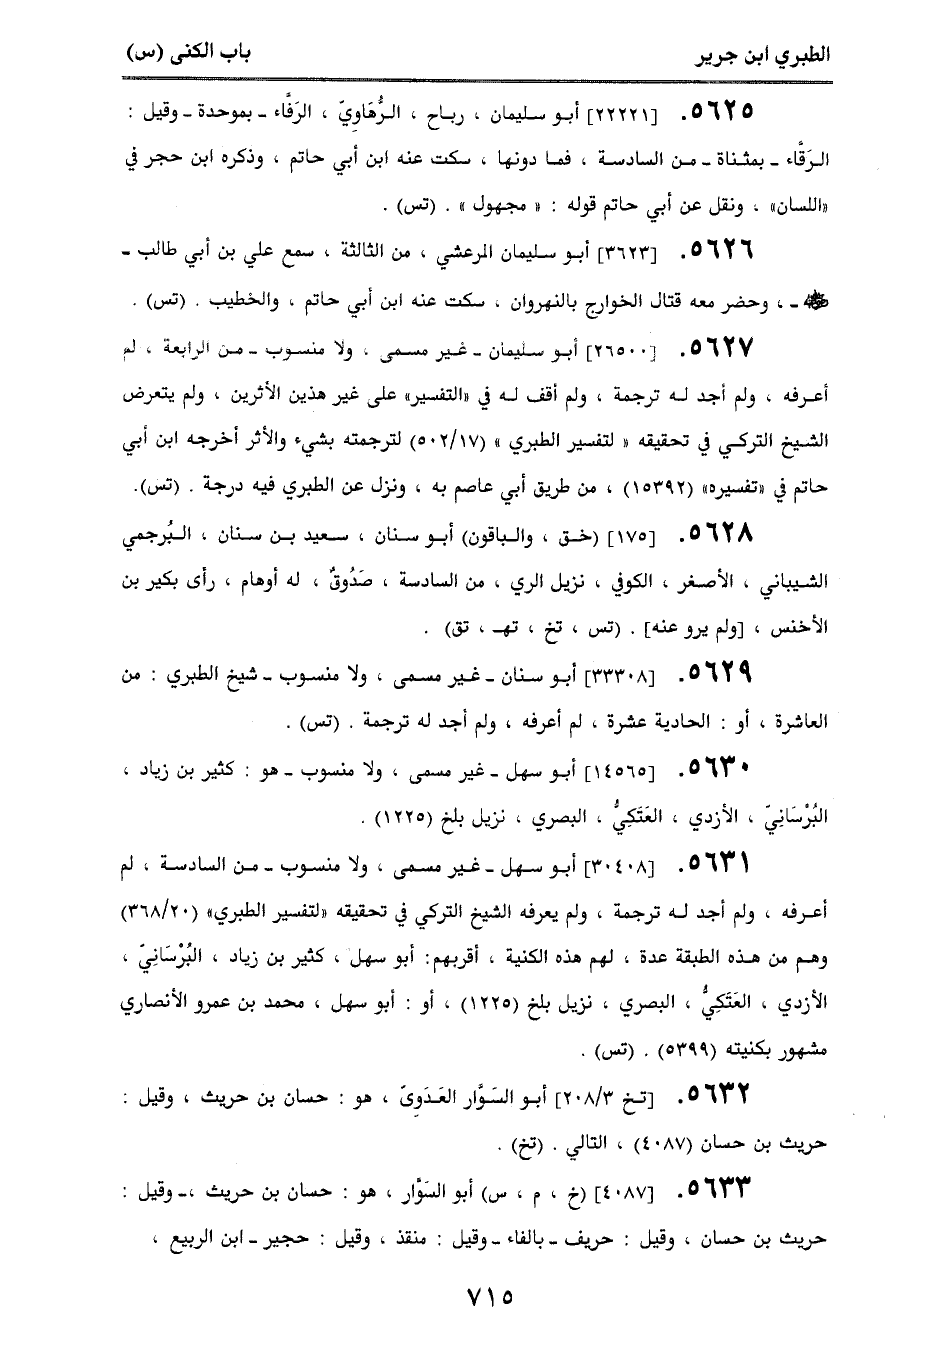 الطبري ابن جرير
باب الكنى (س)
٥٦٢٥. [٢٢٢٢١] أبو سليمان ، رباح ، الرُّهَاوِيّ ، الرَفَّاء ـ بموحدة ـ وقيل :
الرَقَّاء ـ بمثناة ـ من السادسة ، فما دونها ، سكت عنه ابن أبي حاتم ، وذكره ابن حجر في
«اللسان» ، ونقل عن أبي حاتم قوله : « مجهول » . (تس) .
٥٦٢٦. [٣٦٢٣] أبو سليمان المرعشي ، من الثالثة ، سمع علي بن أبي طالب ـ
﵁ ـ ، وحضر معه قتال الخوارج بالنهروان ، سكت عنه ابن أبي حاتم ، والخطيب . (تس) .
٥٦٢٧. [٢٦٥٠٠] أبو سليمان ـ غير مسمى ، ولا منسوب ـ من الرابعة ، لم
أعرفه ، ولم أجد له ترجمة ، ولم أقف له في «التفسير» على غير هذين الأثرين ، ولم يتعرض
الشيخ التركي في تحقيقه « لتفسير الطبري » (٥٠٢/١٧) لترجمته بشيء والأثر أخرجه ابن أبي
حاتم في «تفسيره» (١٥٣٩٢) ، من طريق أبي عاصم به ، ونزل عن الطبري فيه درجة . (تس).
٥٦٢٨. [١٧٥] (خق ، والباقون) أبو سنان ، سعيد بن سنان ، البُرجمي
الشيباني ، الأصغر ، الكوفي ، نزيل الري ، من السادسة ، صَدُوقٌ ، له أوهام ، رأى بكير بن
الأخنس ، [ولم يرو عنه] . (تس ، تخ ، تهـ ، تق) .
٥٦٢٩. [٣٣٣٠٨] أبو سنان ـ غير مسمى ، ولا منسوب ـ شيخ الطبري : من
العاشرة ، أو : الحادية عشرة ، لم أعرفه ، ولم أجد له ترجمة . (تس) .
٥٦٣٠. [١٤٥٦٥] أبو سهل ـ غير مسمى ، ولا منسوب ـ هو : كثير بن زياد ،
البُرْسَانِيّ ، الأزدي ، العَتَكِيُّ ، البصري ، نزيل بلخ (١٢٢٥) .
٥٦٣١. [٣٠٤٠٨] أبو سهل ـ غير مسمى ، ولا منسوب ـ من السادسة ، لم
أعرفه ، ولم أجد له ترجمة ، ولم يعرفه الشيخ التركي في تحقيقه «لتفسير الطبري» (٣٦٨/٢٠)
وهم من هذه الطبقة عدة ، لهم هذه الكنية ، أقربهم: أبو سهل ، كثير بن زياد ، البُرْسَانِيّ ،
الأزدي ، العَتَكِيُّ ، البصري ، نزيل بلخ (١٢٢٥) ، أو : أبو سهل ، محمد بن عمرو الأنصاري
مشهور بكنيته (٥٣٩٩) . (تس) .
٥٦٣٢. [تخ ٢٠٨/٣] أبو السَوَّار العَدَوِيّ ، هو : حسان بن حريث ، وقيل :
حريث بن حسان (٤٠٨٧) ، التالي . (تخ) .
٥٦٣٣. [٤٠٨٧] (خ ، م ، س) أبو السَوَّار ، هو : حسان بن حريث ،ـ وقيل :
حريث بن حسان ، وقيل : حريف ـ بالفاء ـ وقيل : منقذ ، وقيل : حجير ـ ابن الربيع ،
٧١٥